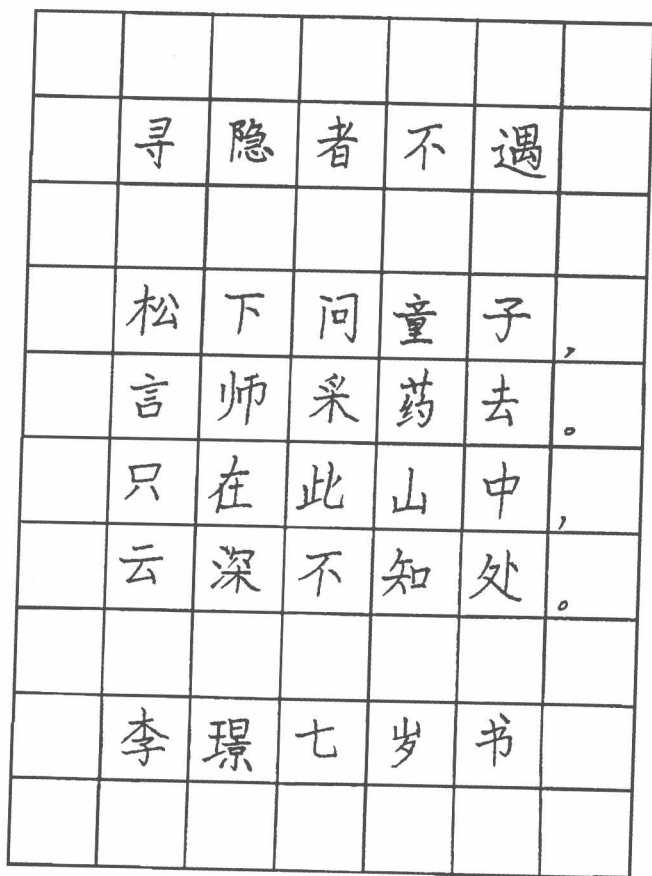 寻隐者不遇
松下问童子，
言师采药去。
只在此山中，
云深不知处。
李璟七岁书